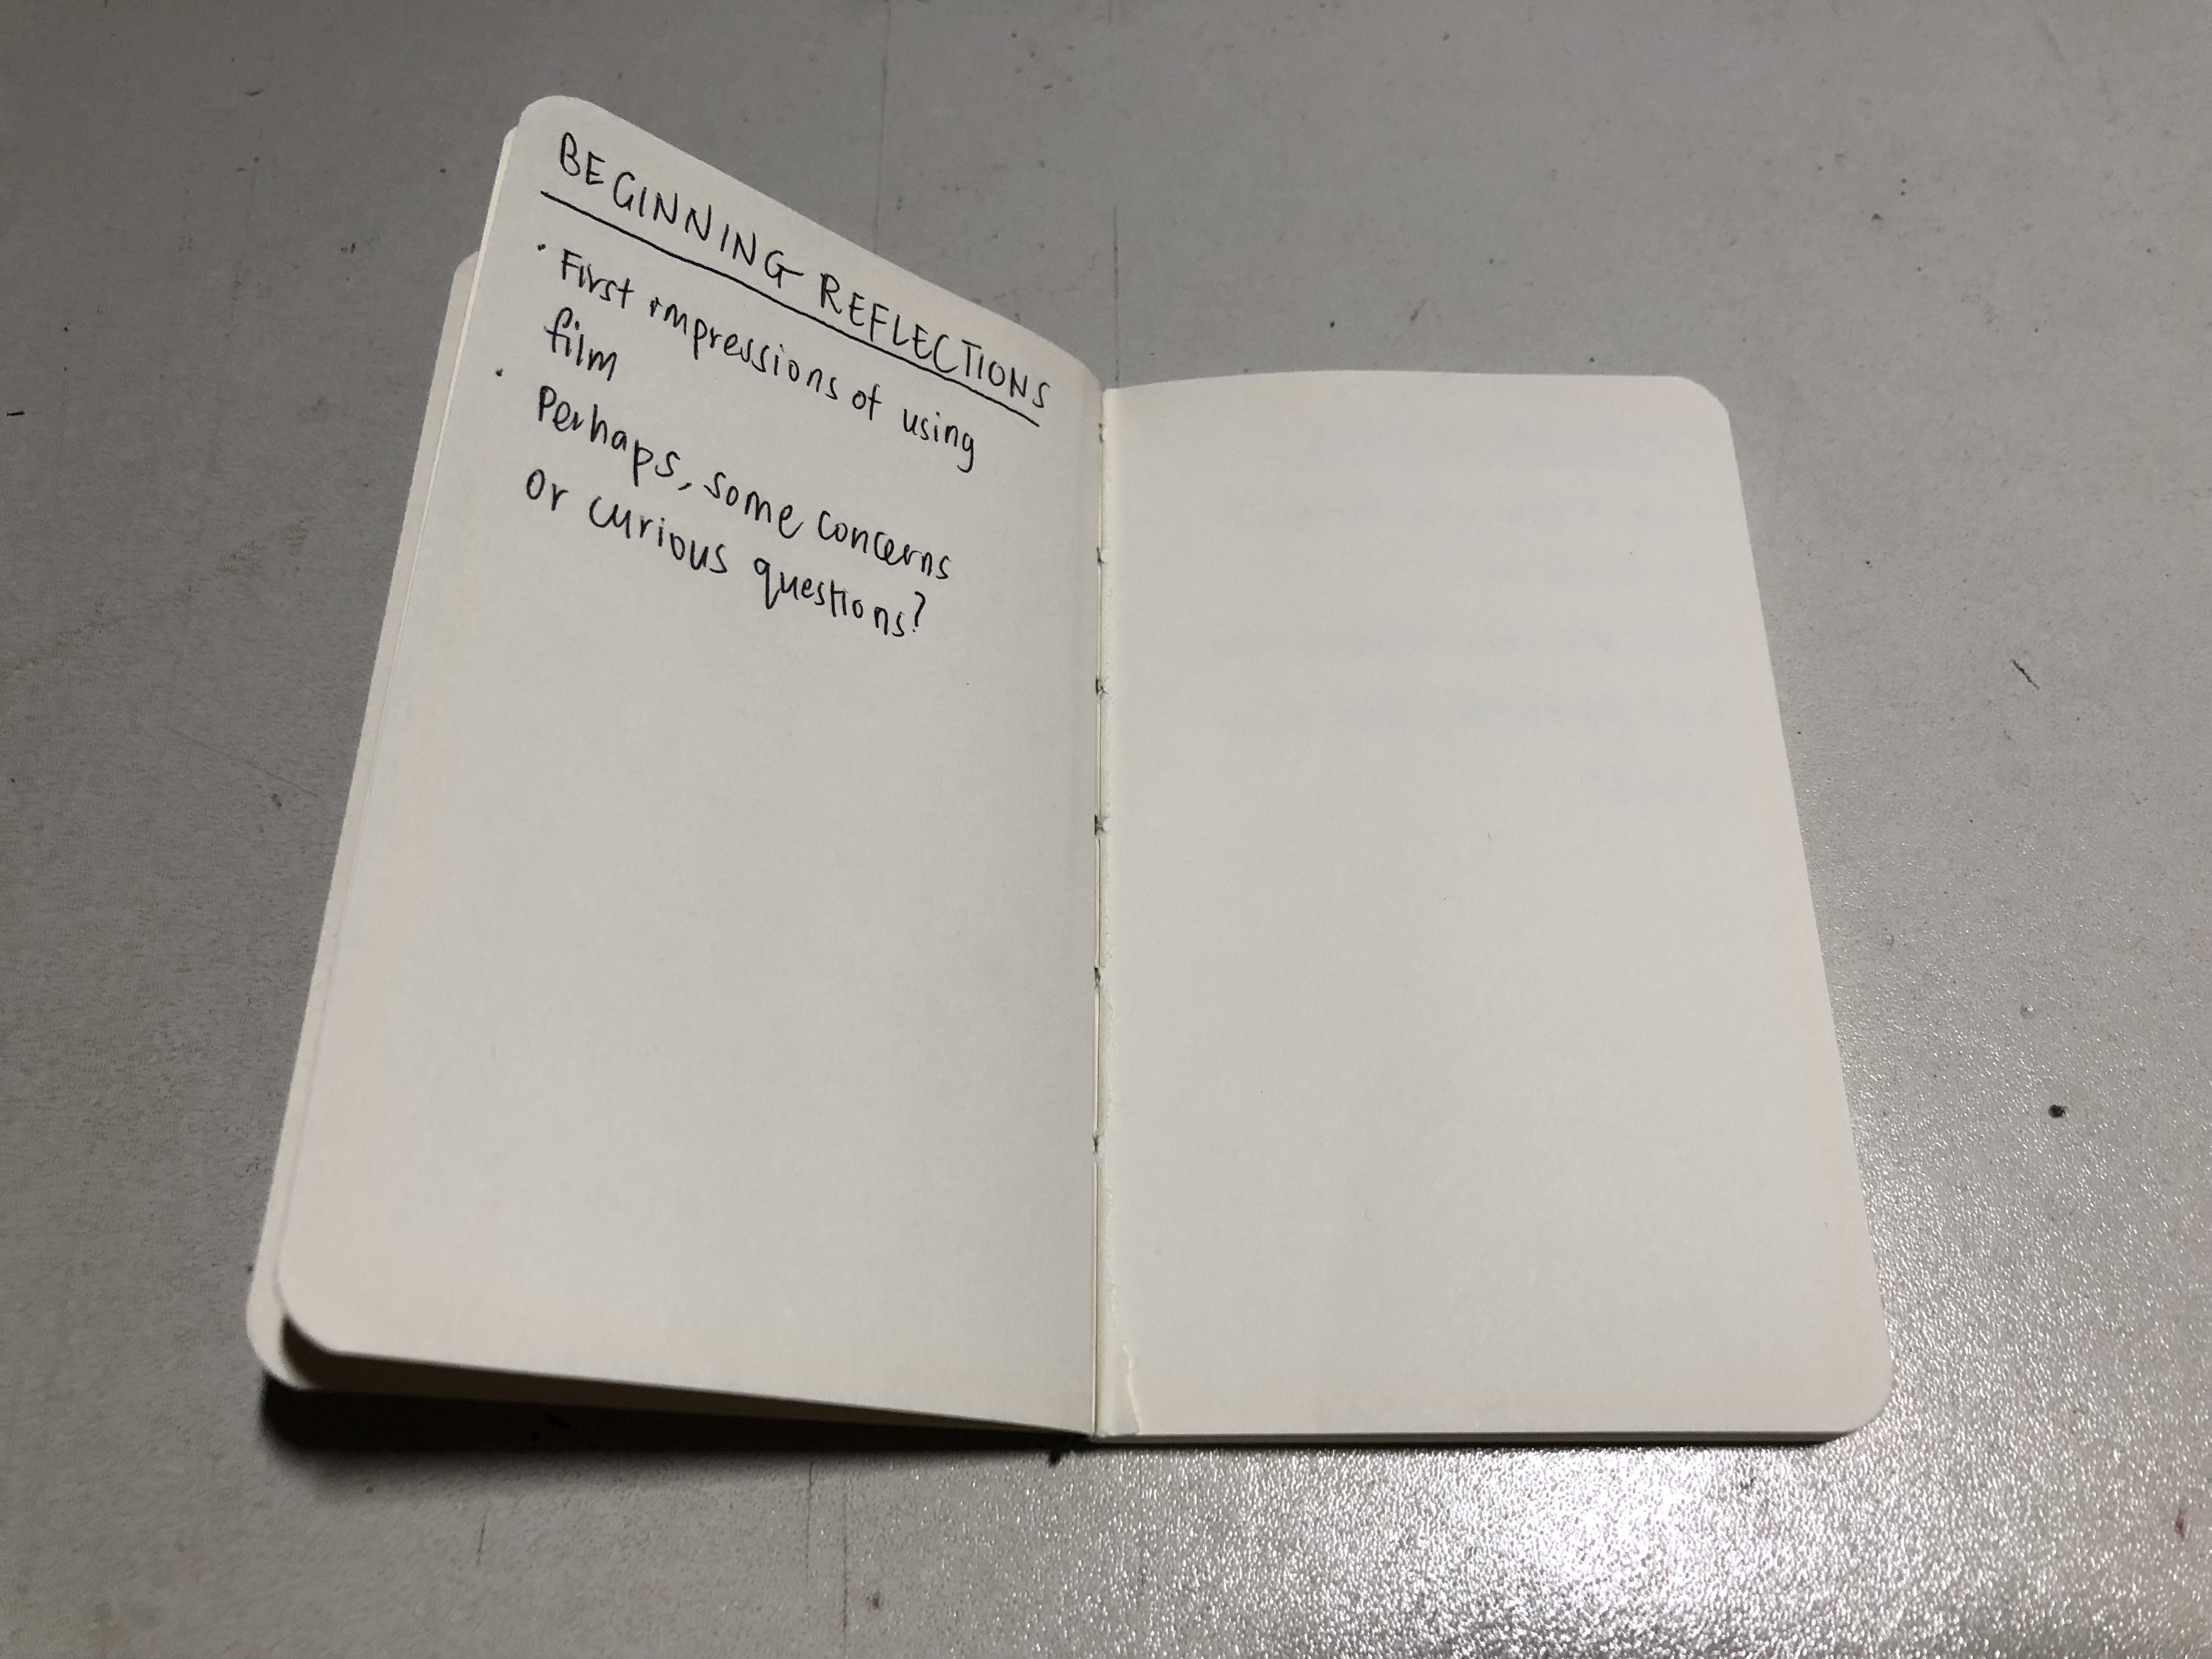 BEGINNING REFLECTIONS
· First impressions of using
film
· Perhaps, some concerns
or curious questions?